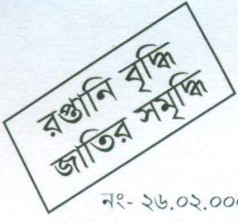 রপ্তানি বৃদ্ধি
জাতির সমৃদ্ধি
নং- ২৬.০২.০০০